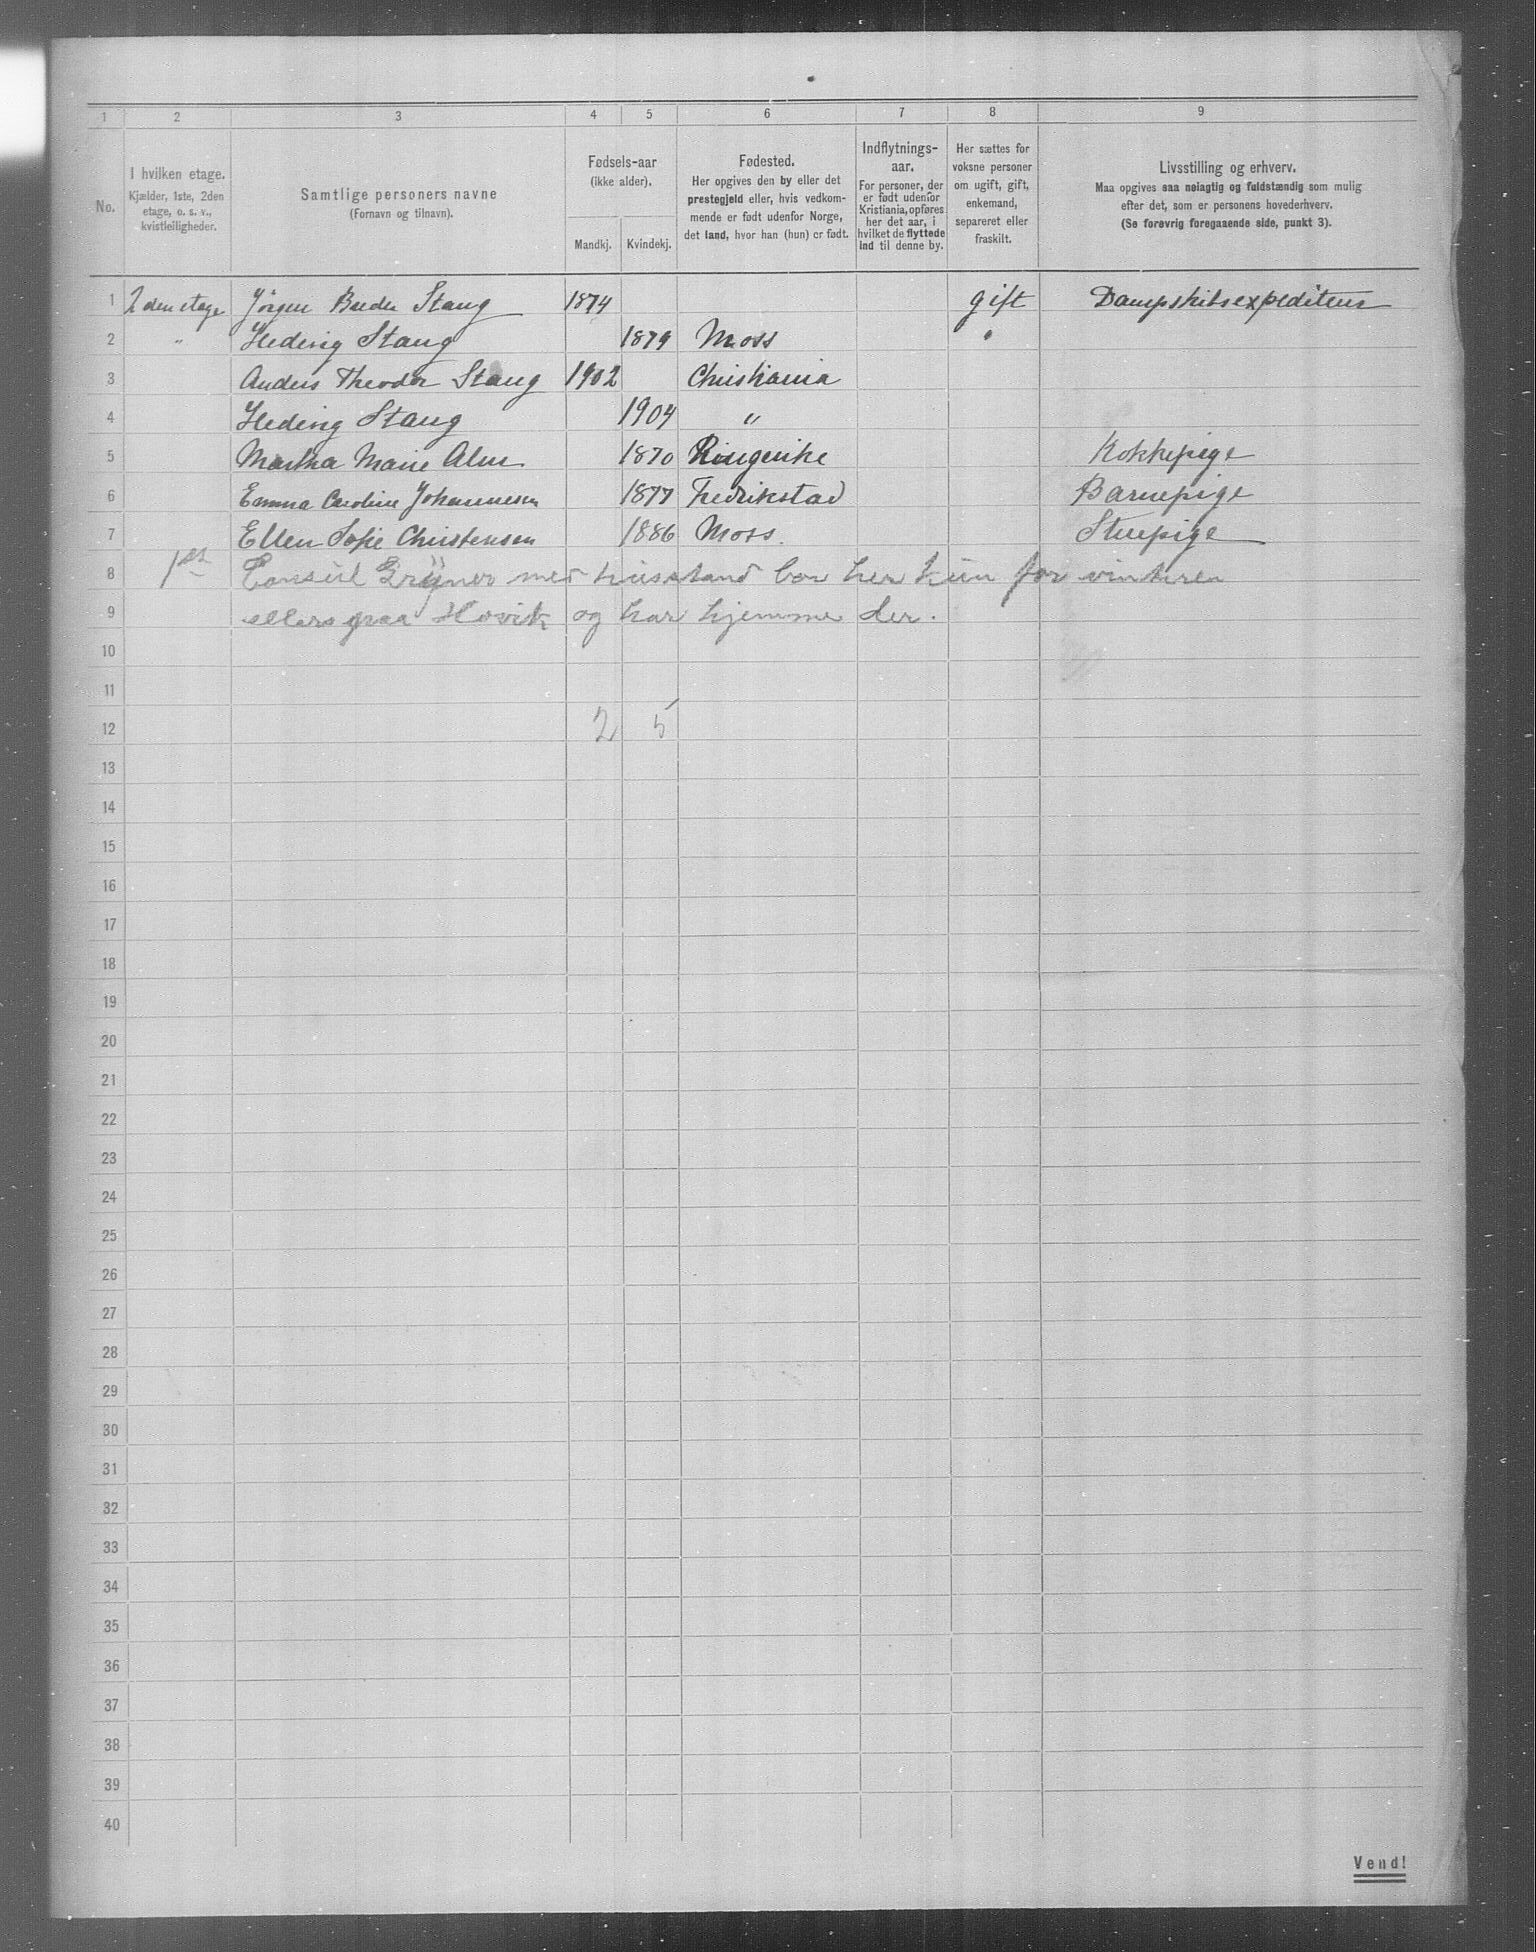 1 2 3 4 5 6 7 8 9
No.
I hvilken etage.
Kjælder, 1ste, 2den
etage, o. s. v.,
kvistleiligheder.
Samtlige personers navne
(Fornavn og tilnavn).
Fødsels-aar
(ikke alder).
Mandkj. Kvindekj.
Fødested.
Her opgives den by eller det
prestegjeld eller, hvis vedkom-
mende er født udenfor Norge,
det land, hvor han (hun) er født.
Indflytnings-
aar.
For personer, der
er født udenfor
Kristiania, opføres
her det aar, i
hvilket de flyttede
ind til denne by.
Her sættes for
voksne personer
om ugift, gift,
enkemand,
separeret eller
fraskilt.
Livsstilling og erhverv.
Maa opgives saa nøiagtig og fuldstændig som mulig
efter det, som er personens hovederhverv.
(Se forøvrig foregaaende side, punkt 3).
1 2 den etage Jörgen Stang 1874 gift Dampskibsexpediteur
2 " Hedevig Stang 1879 Moss "
3 Anders Theodor Stang 1902 Christiania
4 Hedevig Stang 1904 "
5 Martha Marie Alm 1870 Ringerike Kokkepige
6 Emma Caroline Johannesen 1877 Fredrikstad Barnepige
7 Ellen Sofie Christensen 1886 Moss. Stuepige
8 1st Consul Grüner med husstand bor her kun for vinteren
9 ellers paa Hövik og har hjemme der.
10
11
12 2 5
13
14
15
16
17
18
19
20
21
22
23
24
25
26
27
28
29
30
31
32
33
34
35
36
37
38
39
40
Vend!